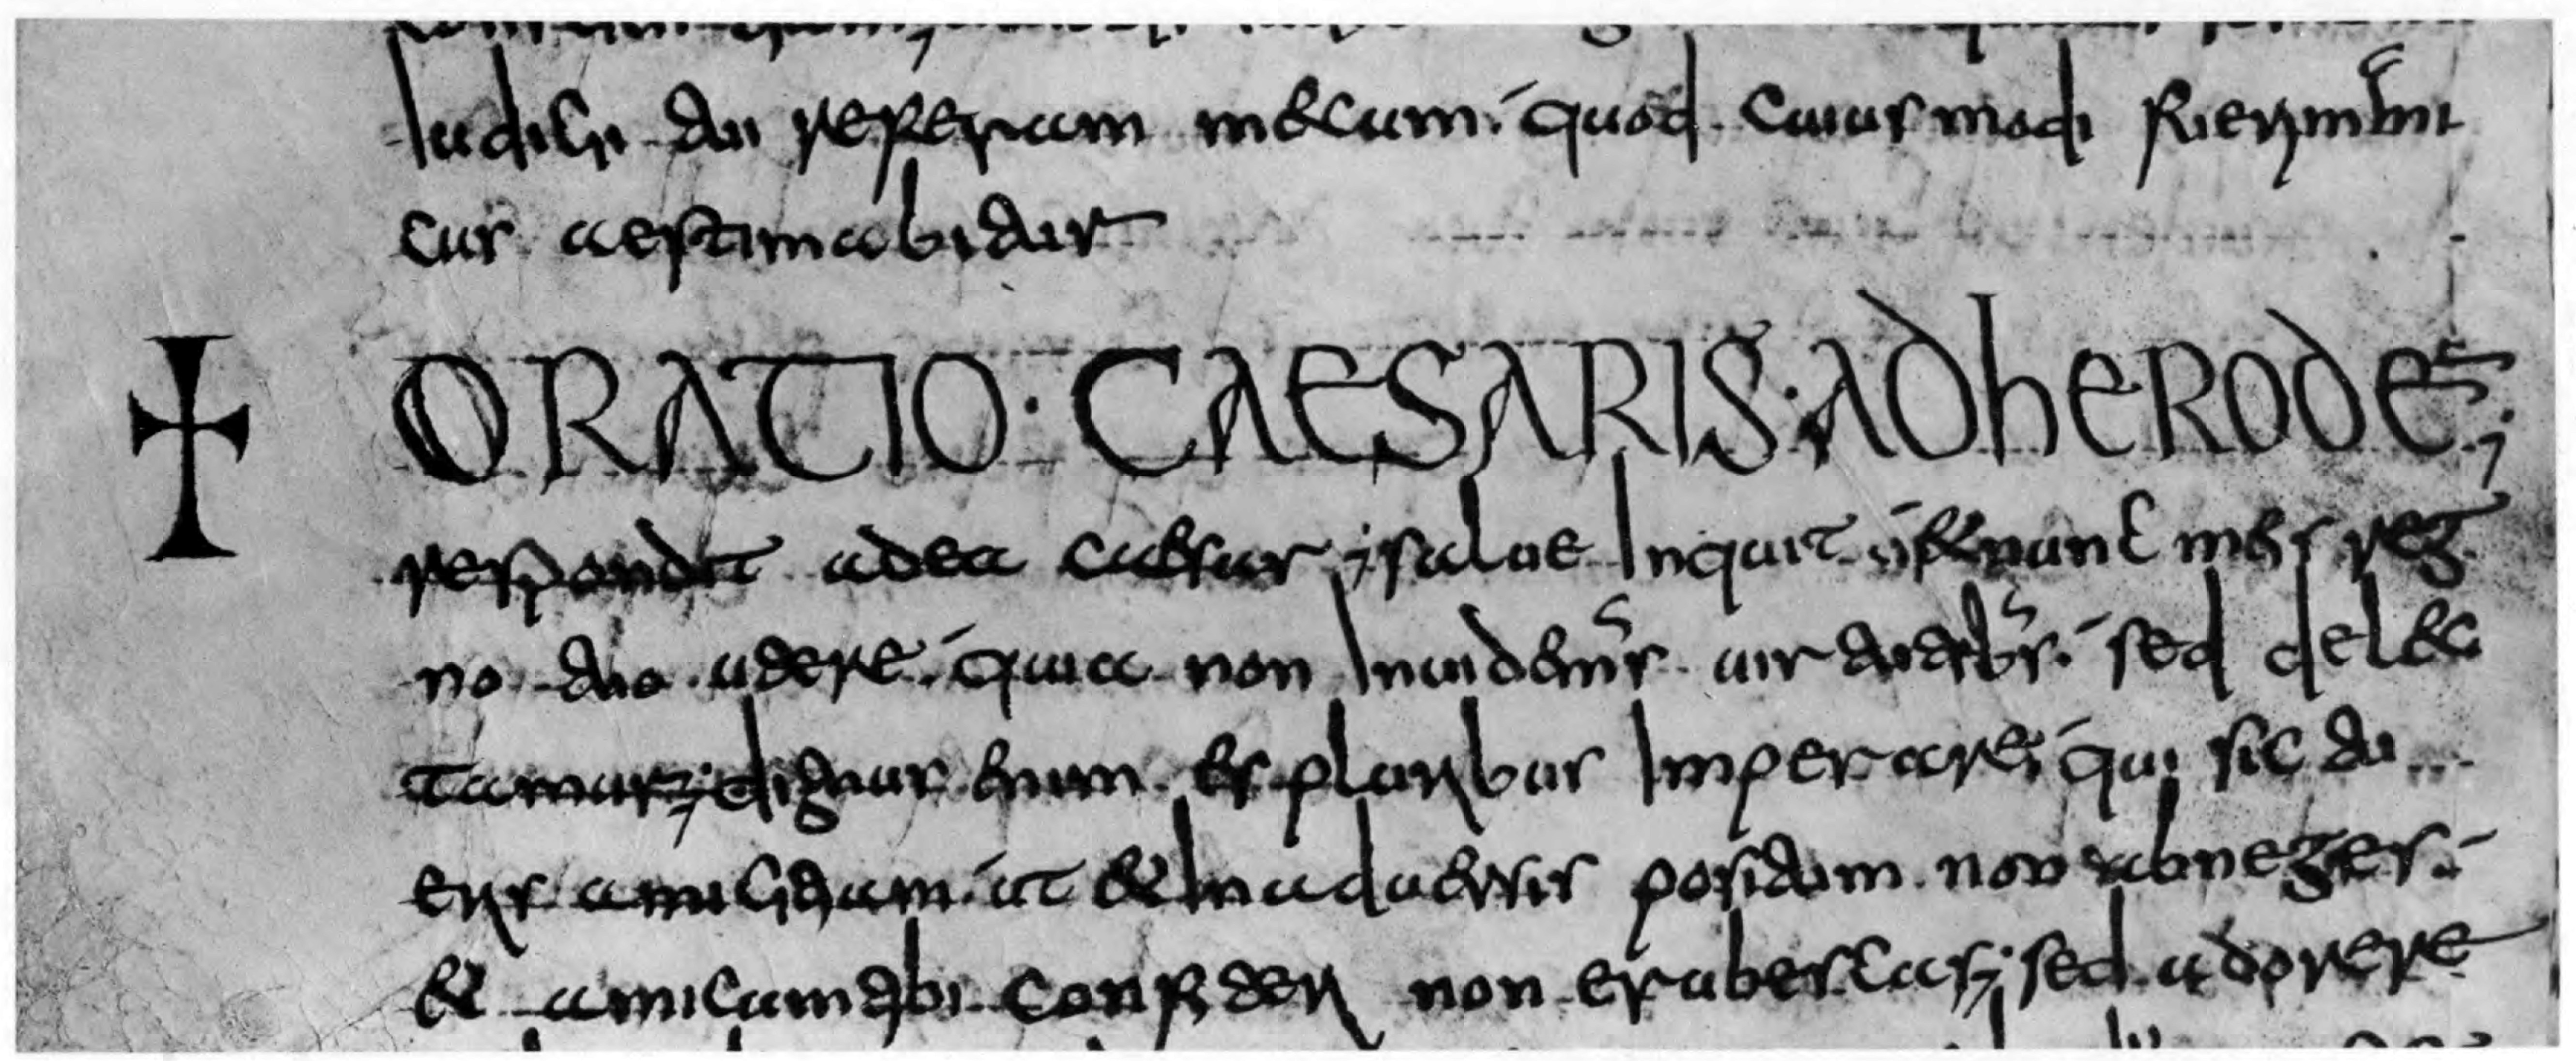 Iudicii tui referam mecum. quod cuiusmodi fierim
cus aestimabitur
ORATIO · CAESARIS · AD hERODE;
respondit adea caesar; salue Inquit; & nunc meis reg
no tuo adere. quia non Inuidemus uirtutibus. sed delec
tamur; dignus enim es pluribus Imperare; qui sic tu
eris amicitiam. ut & In aduersis positum non abneges.
& amicum tibi confideri non erubescas; sed adorere